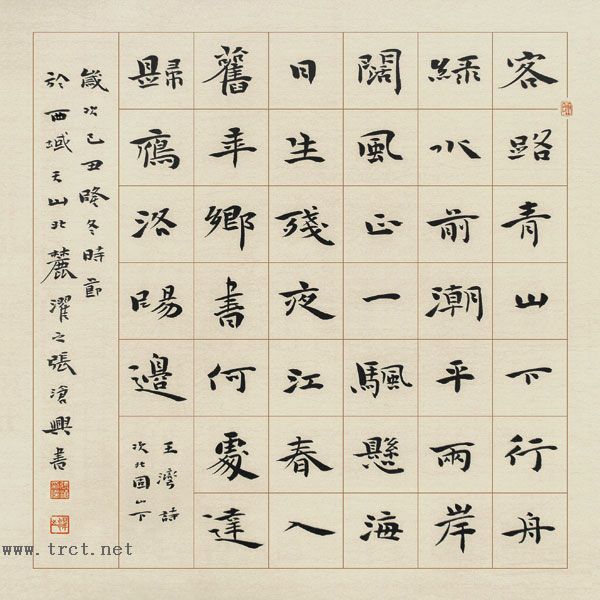 客路青山下行舟
綠水前潮平兩岸
闊風正一颿懸海
日生殘夜江春入
舊年鄉書何處達
歸鴈洛陽邊
王灣詩
次北固山下
歲次己丑隆冬時節
於西域天山北麓濯之張滄興書
www.trct.net